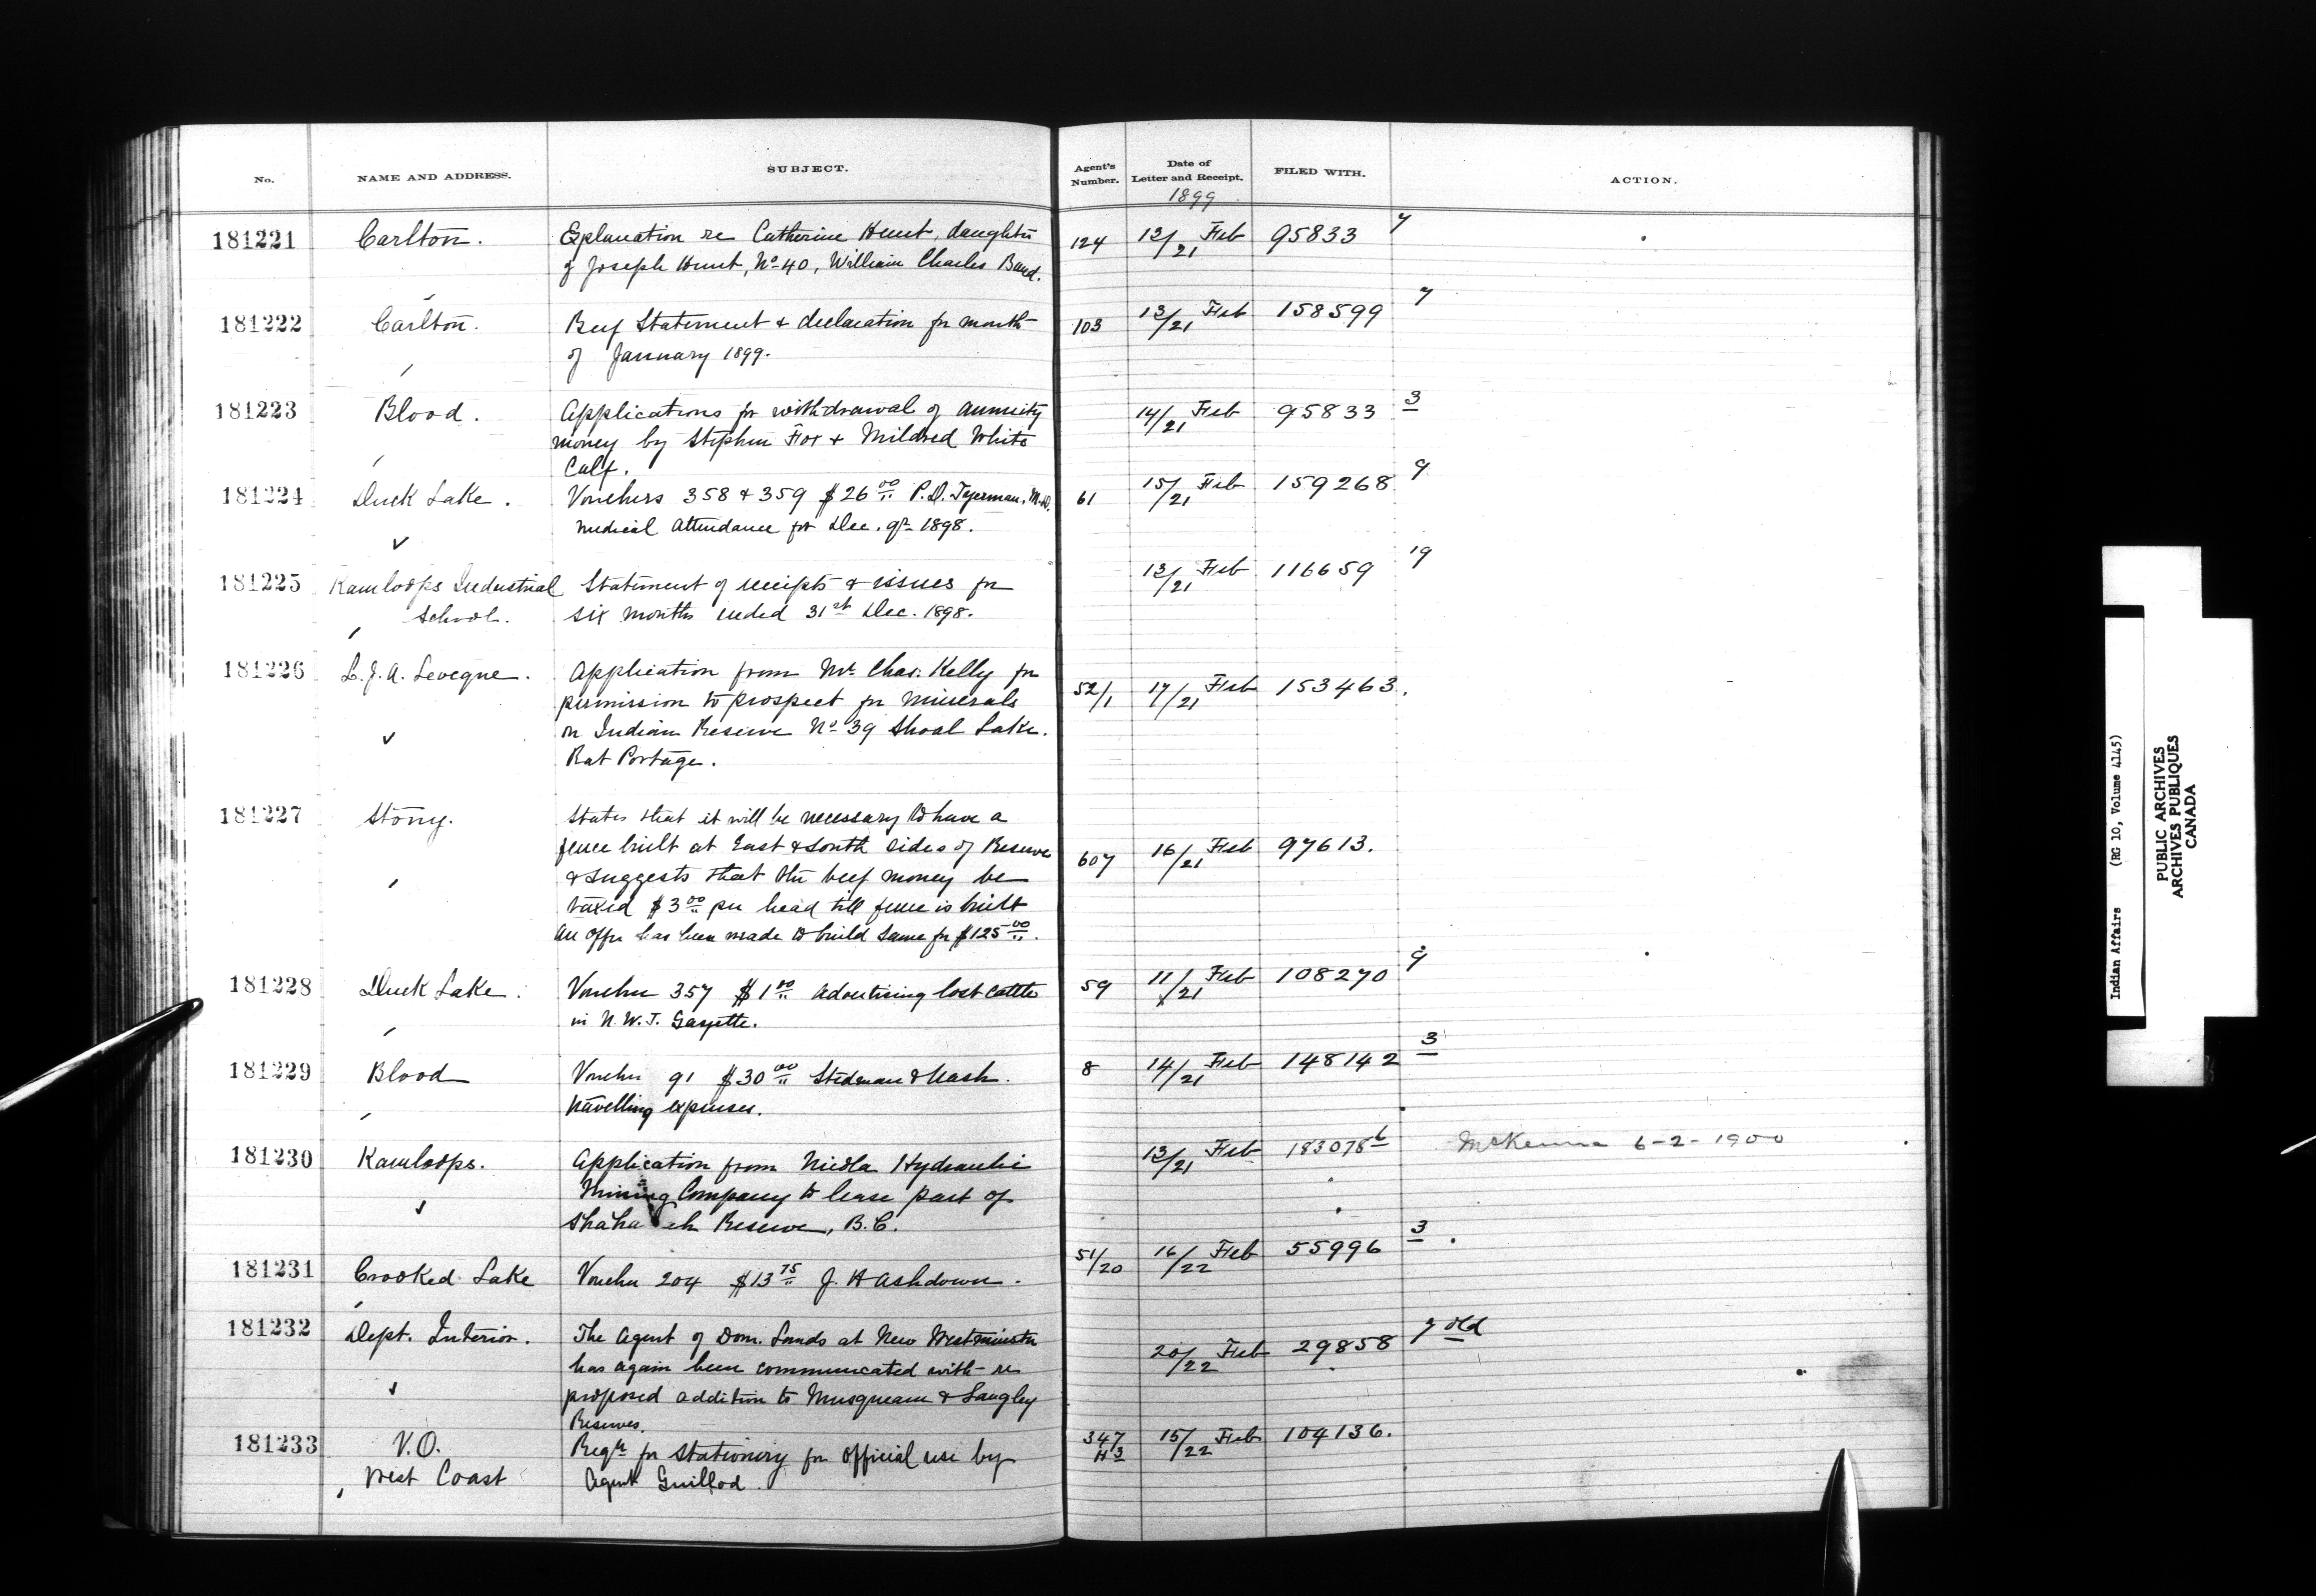 No. NAME AND ADDRESS. SUBJECT. Agent's Number. Date of Letter and Receipt. FILED WITH. ACTION.
1899
181221 Carlton. Explanation re Catherine Hunt, daughter 124 13/21 Feb 95833 7
of Joseph Hunt, No 40, William Charles Band.
181222 Carlton. Beef Statement & declaration for month 103 13/21 Feb 158599 7
of January 1899.
181223 Blood. Applications for withdrawal of annuity 14/21 Feb 95833 3
money by Stephen Fox & Mildred White
Calf.
181224 Duck Lake. Vouchers 358 & 359 $26 00 P.D. Tyerman, M.D. 61 15/21 Feb 159268 9
medical attendance for Dec. qr 1898.
181225 Kamloops Industrial Statement of receipts & issues for 13/21 Feb 116659 19
School. six months ended 31st Dec. 1898.
181226 L.J.A. Leveque. Application from Mr Chas. Kelly for 52/1 17/21 Feb 153463.
permission to prospect for minerals
on Indian Reserve No 39 Shoal Lake.
Rat Portage.
181227 Stony. States that it will be necessary to have a
fence built at East & South sides of Reserve 607 16/21 Feb 97613.
& suggests that the beef money be
taxed $3 00 per head till fence is built
An offer has been made to build same for $125 00.
181228 Duck Lake. Voucher 357 $1 00 advertising lost cattle 59 11/21 Feb 108270 9
in N.W.T. Gazette.
181229 Blood Voucher 91 $30 00 Stedman & Nash. 8 14/21 Feb 148142 3
travelling expenses.
181230 Kamloops. Application from Nicola Hydraulic 13/21 Feb 183078 McKenna 6-2-1900
Mining Company to lease part of
Reserve, B.C.
181231 Crooked Lake Voucher 204 $13 75 J. H Ashdown. 51/20 16/22 Feb 55996 3
181232 Dept. Interior. The Agent of Dom. Lands at New Westminster 20/22 Feb 29858 7 old
has again been communicated with re
proposed addition to Musqueam & Langley
Reserves.
181233 V.O. Reqn for stationery for official use by 347 H3 15/22 Feb 104136.
West Coast Agent Guillod.
Indian Affairs (RG 10, Volume 4145)
PUBLIC ARCHIVES
ARCHIVES PUBLIQUES
CANADA